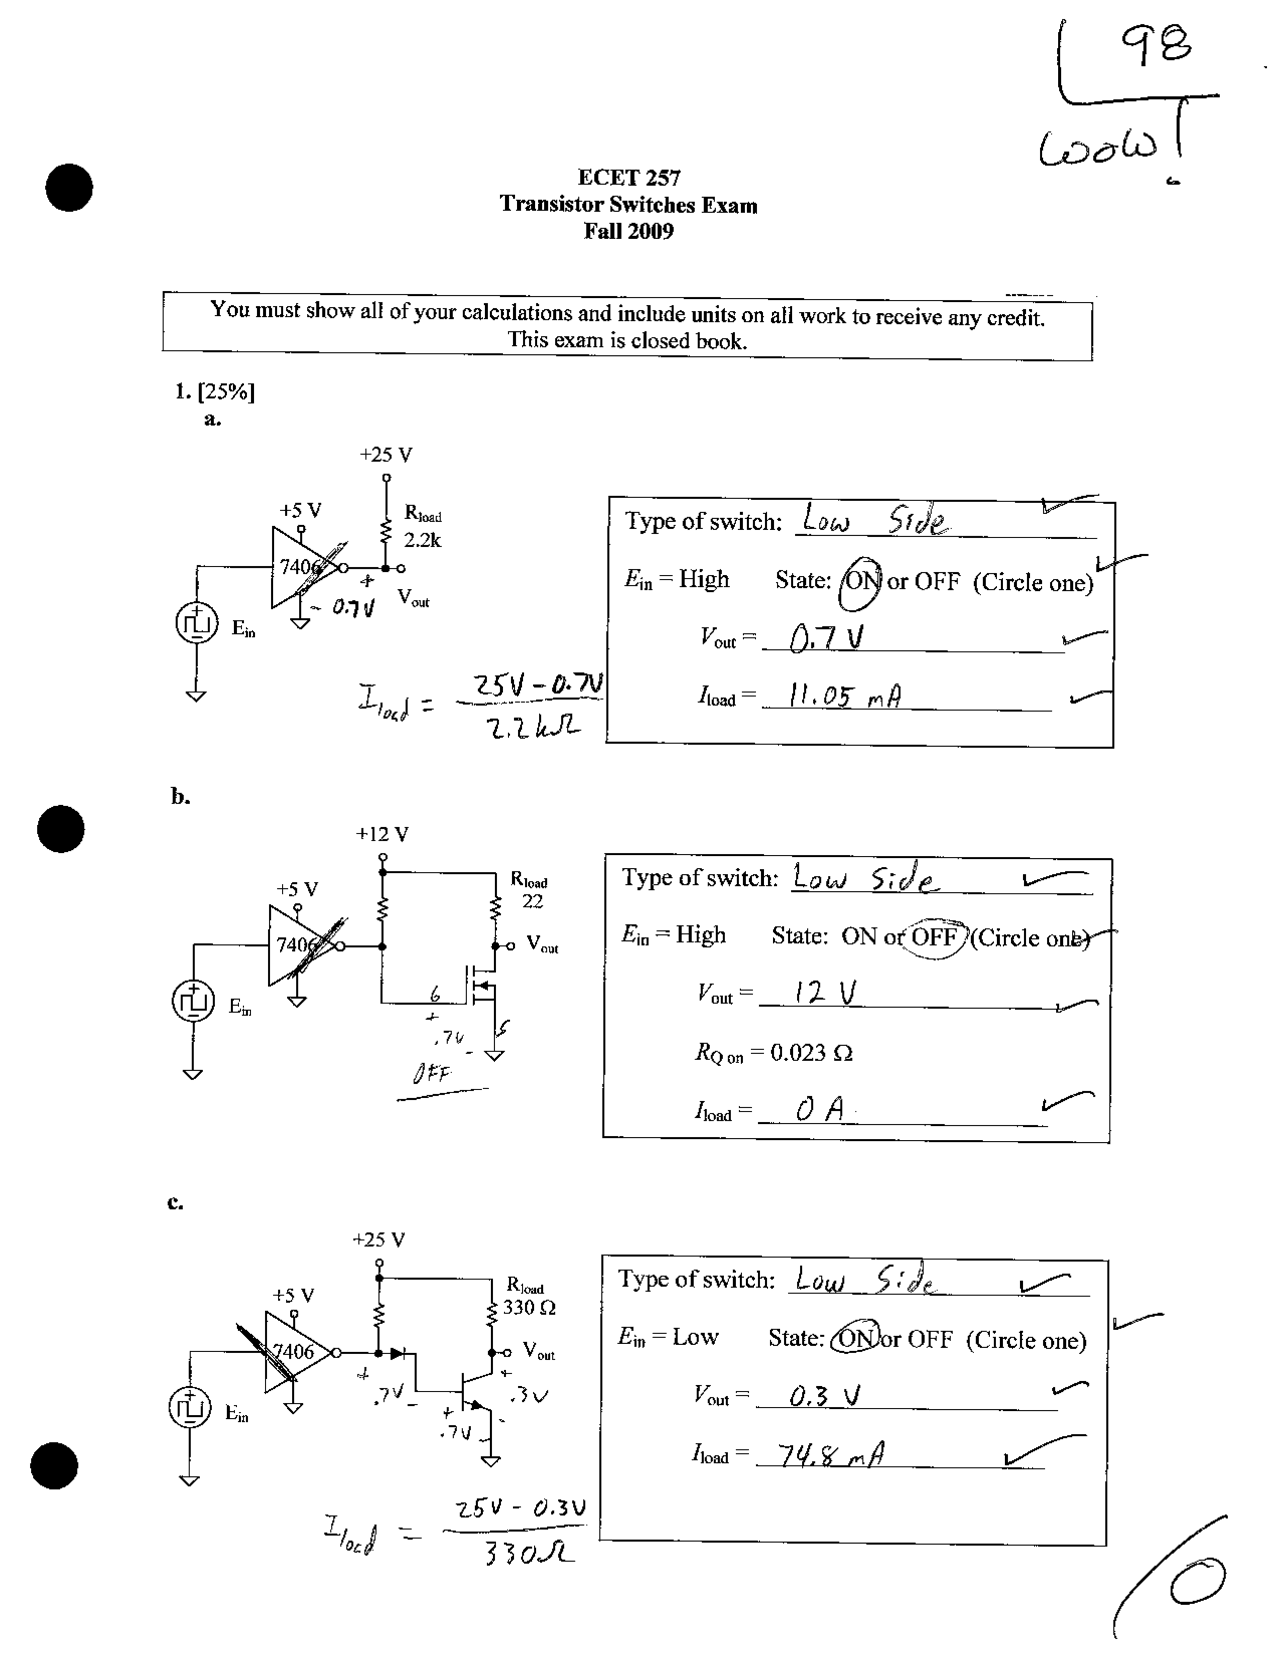 98
WOOW!
ECET 257
Transistor Switches Exam
Fall 2009
You must show all of your calculations and include units on all work to receive any credit.
This exam is closed book.
1. [25%]
a.
+25 V
+5 V
Rload
2.2k
7406
+
- 0.7V
Vout
Ein
Iload = 25V - 0.7V
2.2kΩ
Type of switch: Low Side
Ein = High State: ON or OFF (Circle one)
Vout = 0.7 V
Iload = 11.05 mA
b.
+12 V
+5 V
Rload
22
7406
Vout
Ein
G
+
.7V
-
S
OFF
Type of switch: Low Side
Ein = High State: ON or OFF (Circle one)
Vout = 12 V
RQ on = 0.023 Ω
Iload = 0 A
c.
+25 V
+5 V
Rload
330 Ω
7406
Vout
+ .7V -
+
.3V
-
Ein
+
.7V -
Iload = 25V - 0.3V
330Ω
Type of switch: Low Side
Ein = Low State: ON or OFF (Circle one)
Vout = 0.3 V
Iload = 74.8 mA
/0